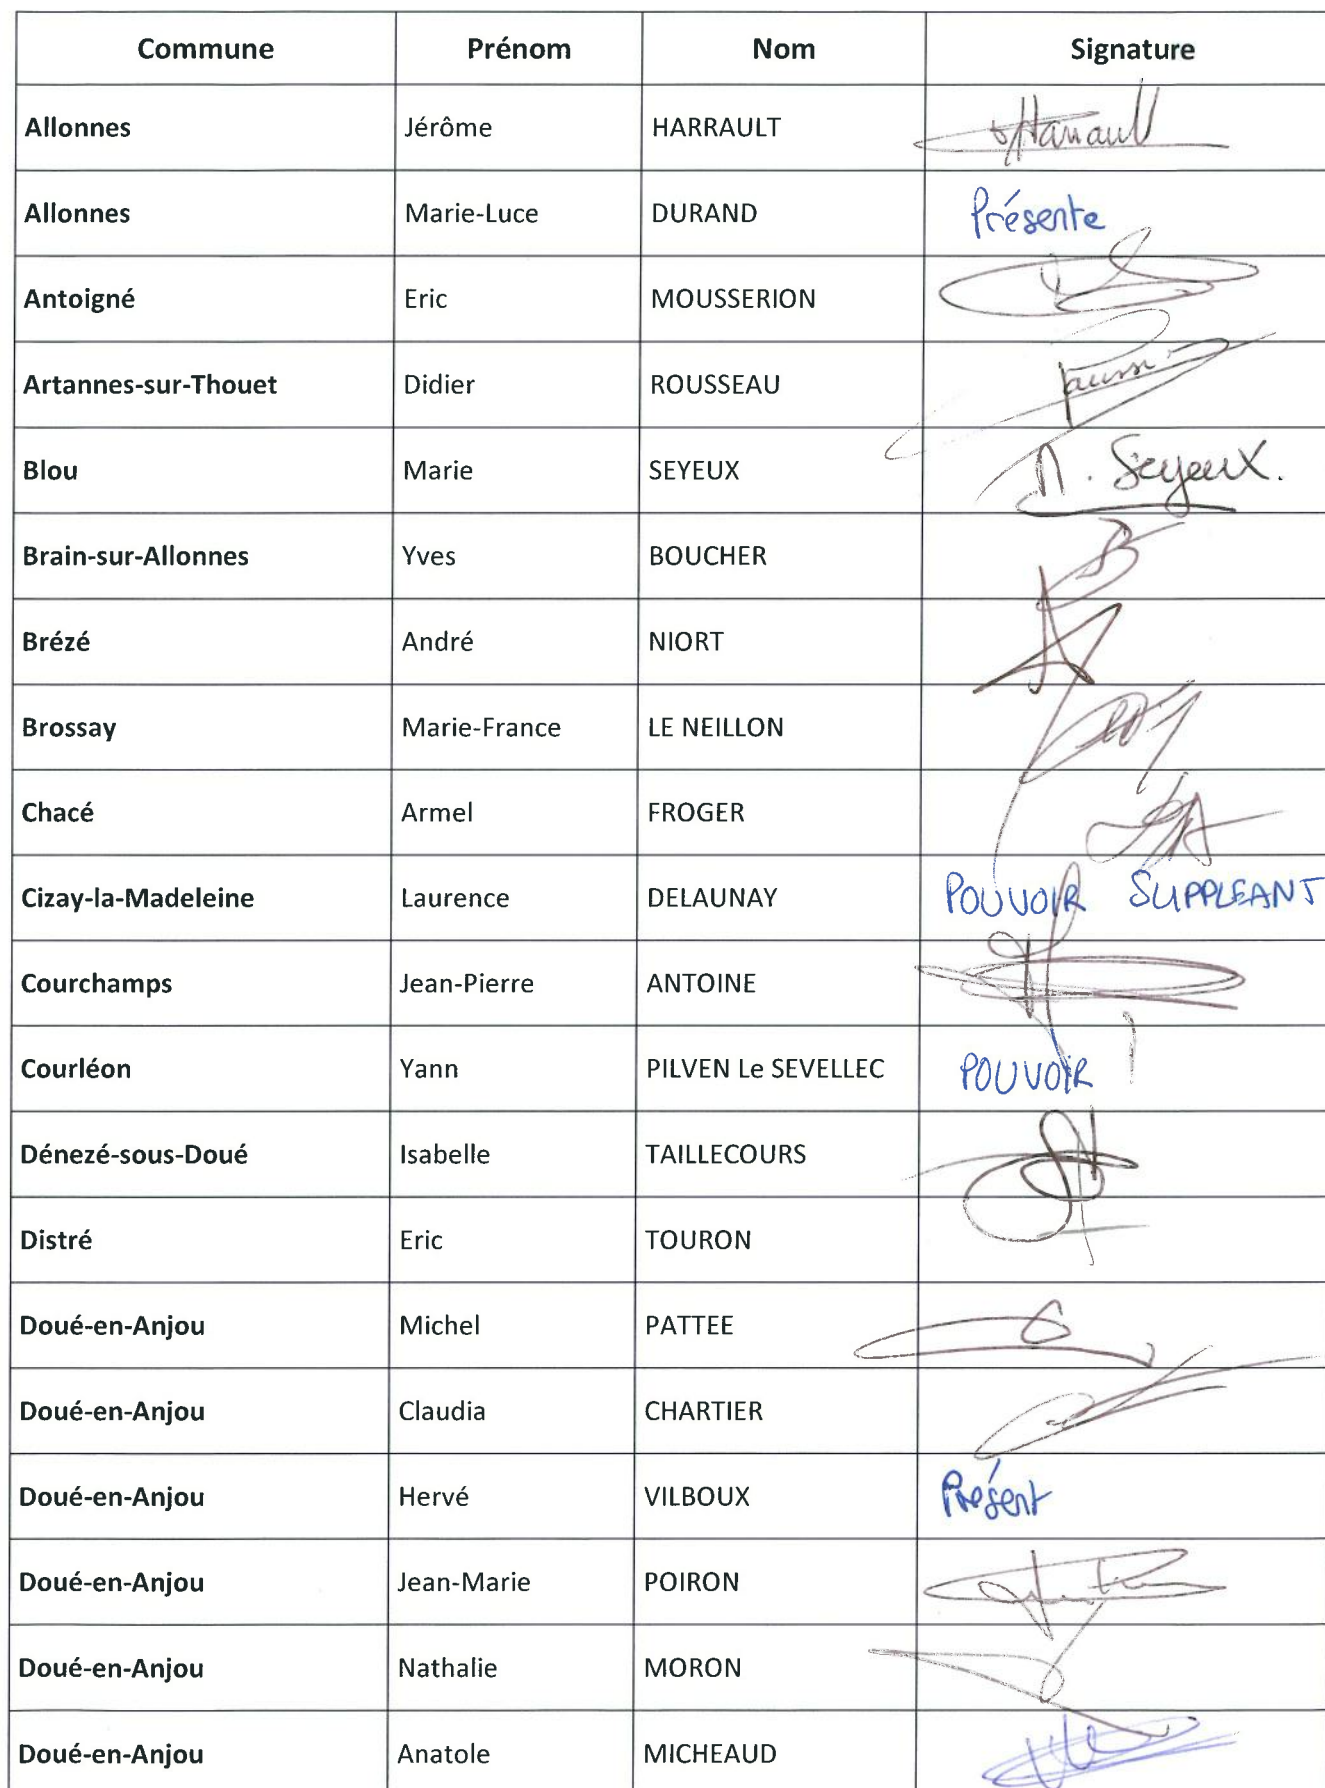 Commune Prénom Nom Signature
Allonnes Jérôme HARRAULT Harrault
Allonnes Marie-Luce DURAND Présente
Antoigné Eric MOUSSERION
Artannes-sur-Thouet Didier ROUSSEAU
Blou Marie SEYEUX M. Seyeux.
Brain-sur-Allonnes Yves BOUCHER
Brézé André NIORT
Brossay Marie-France LE NEILLON
Chacé Armel FROGER
Cizay-la-Madeleine Laurence DELAUNAY POUVOIR SUPPLEANT
Courchamps Jean-Pierre ANTOINE
Courléon Yann PILVEN Le SEVELLEC POUVOIR
Dénezé-sous-Doué Isabelle TAILLECOURS
Distré Eric TOURON
Doué-en-Anjou Michel PATTEE
Doué-en-Anjou Claudia CHARTIER
Doué-en-Anjou Hervé VILBOUX Présent
Doué-en-Anjou Jean-Marie POIRON
Doué-en-Anjou Nathalie MORON
Doué-en-Anjou Anatole MICHEAUD